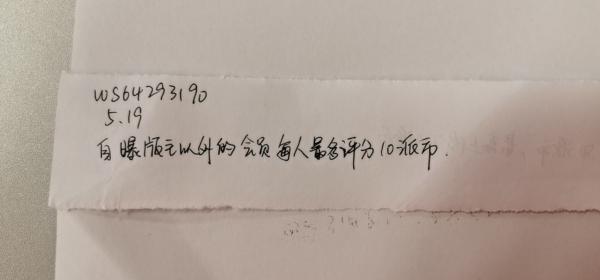 WS64293190
5.19
自曝版主以外的会员每人最多评分10派币.